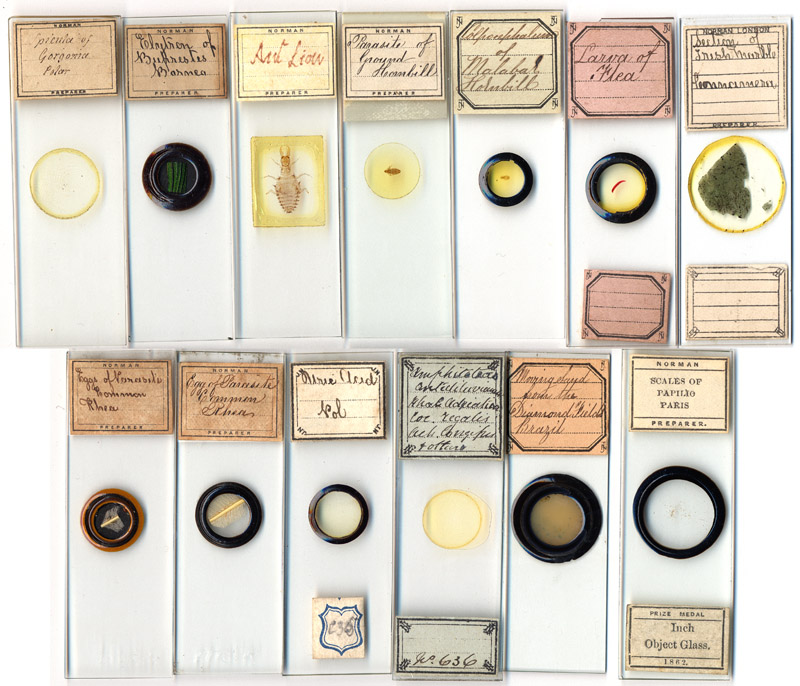 NORMAN
Spicula of
Gorgonia
Polar
PREPARER
NORMAN
Elytron of
Buprestes
Borneo
PREPARER
NORMAN
Ant Lion
PREPARER
NORMAN
Parasite of
Ground
Hornbill
PREPARER
of
Malabar
Hornbill
Larva of
Flea
NORMAN LONDON
Section of
Irish Marble
PREPARER
NORMAN
Eggs of Parasite
Common
Rhea
PREPARER
NORMAN
Egg of Parasite
Common
Rhea
PREPARER
Uric Acid
636
Amphitetras
antediluviana
Coc. regalis
& others
No. 636
Moving Sand
from the
Diamond Fields
Brazil
NORMAN
SCALES OF
PAPILIO
PARIS
PREPARER.
PRIZE MEDAL
Inch
Object Glass.
1862.